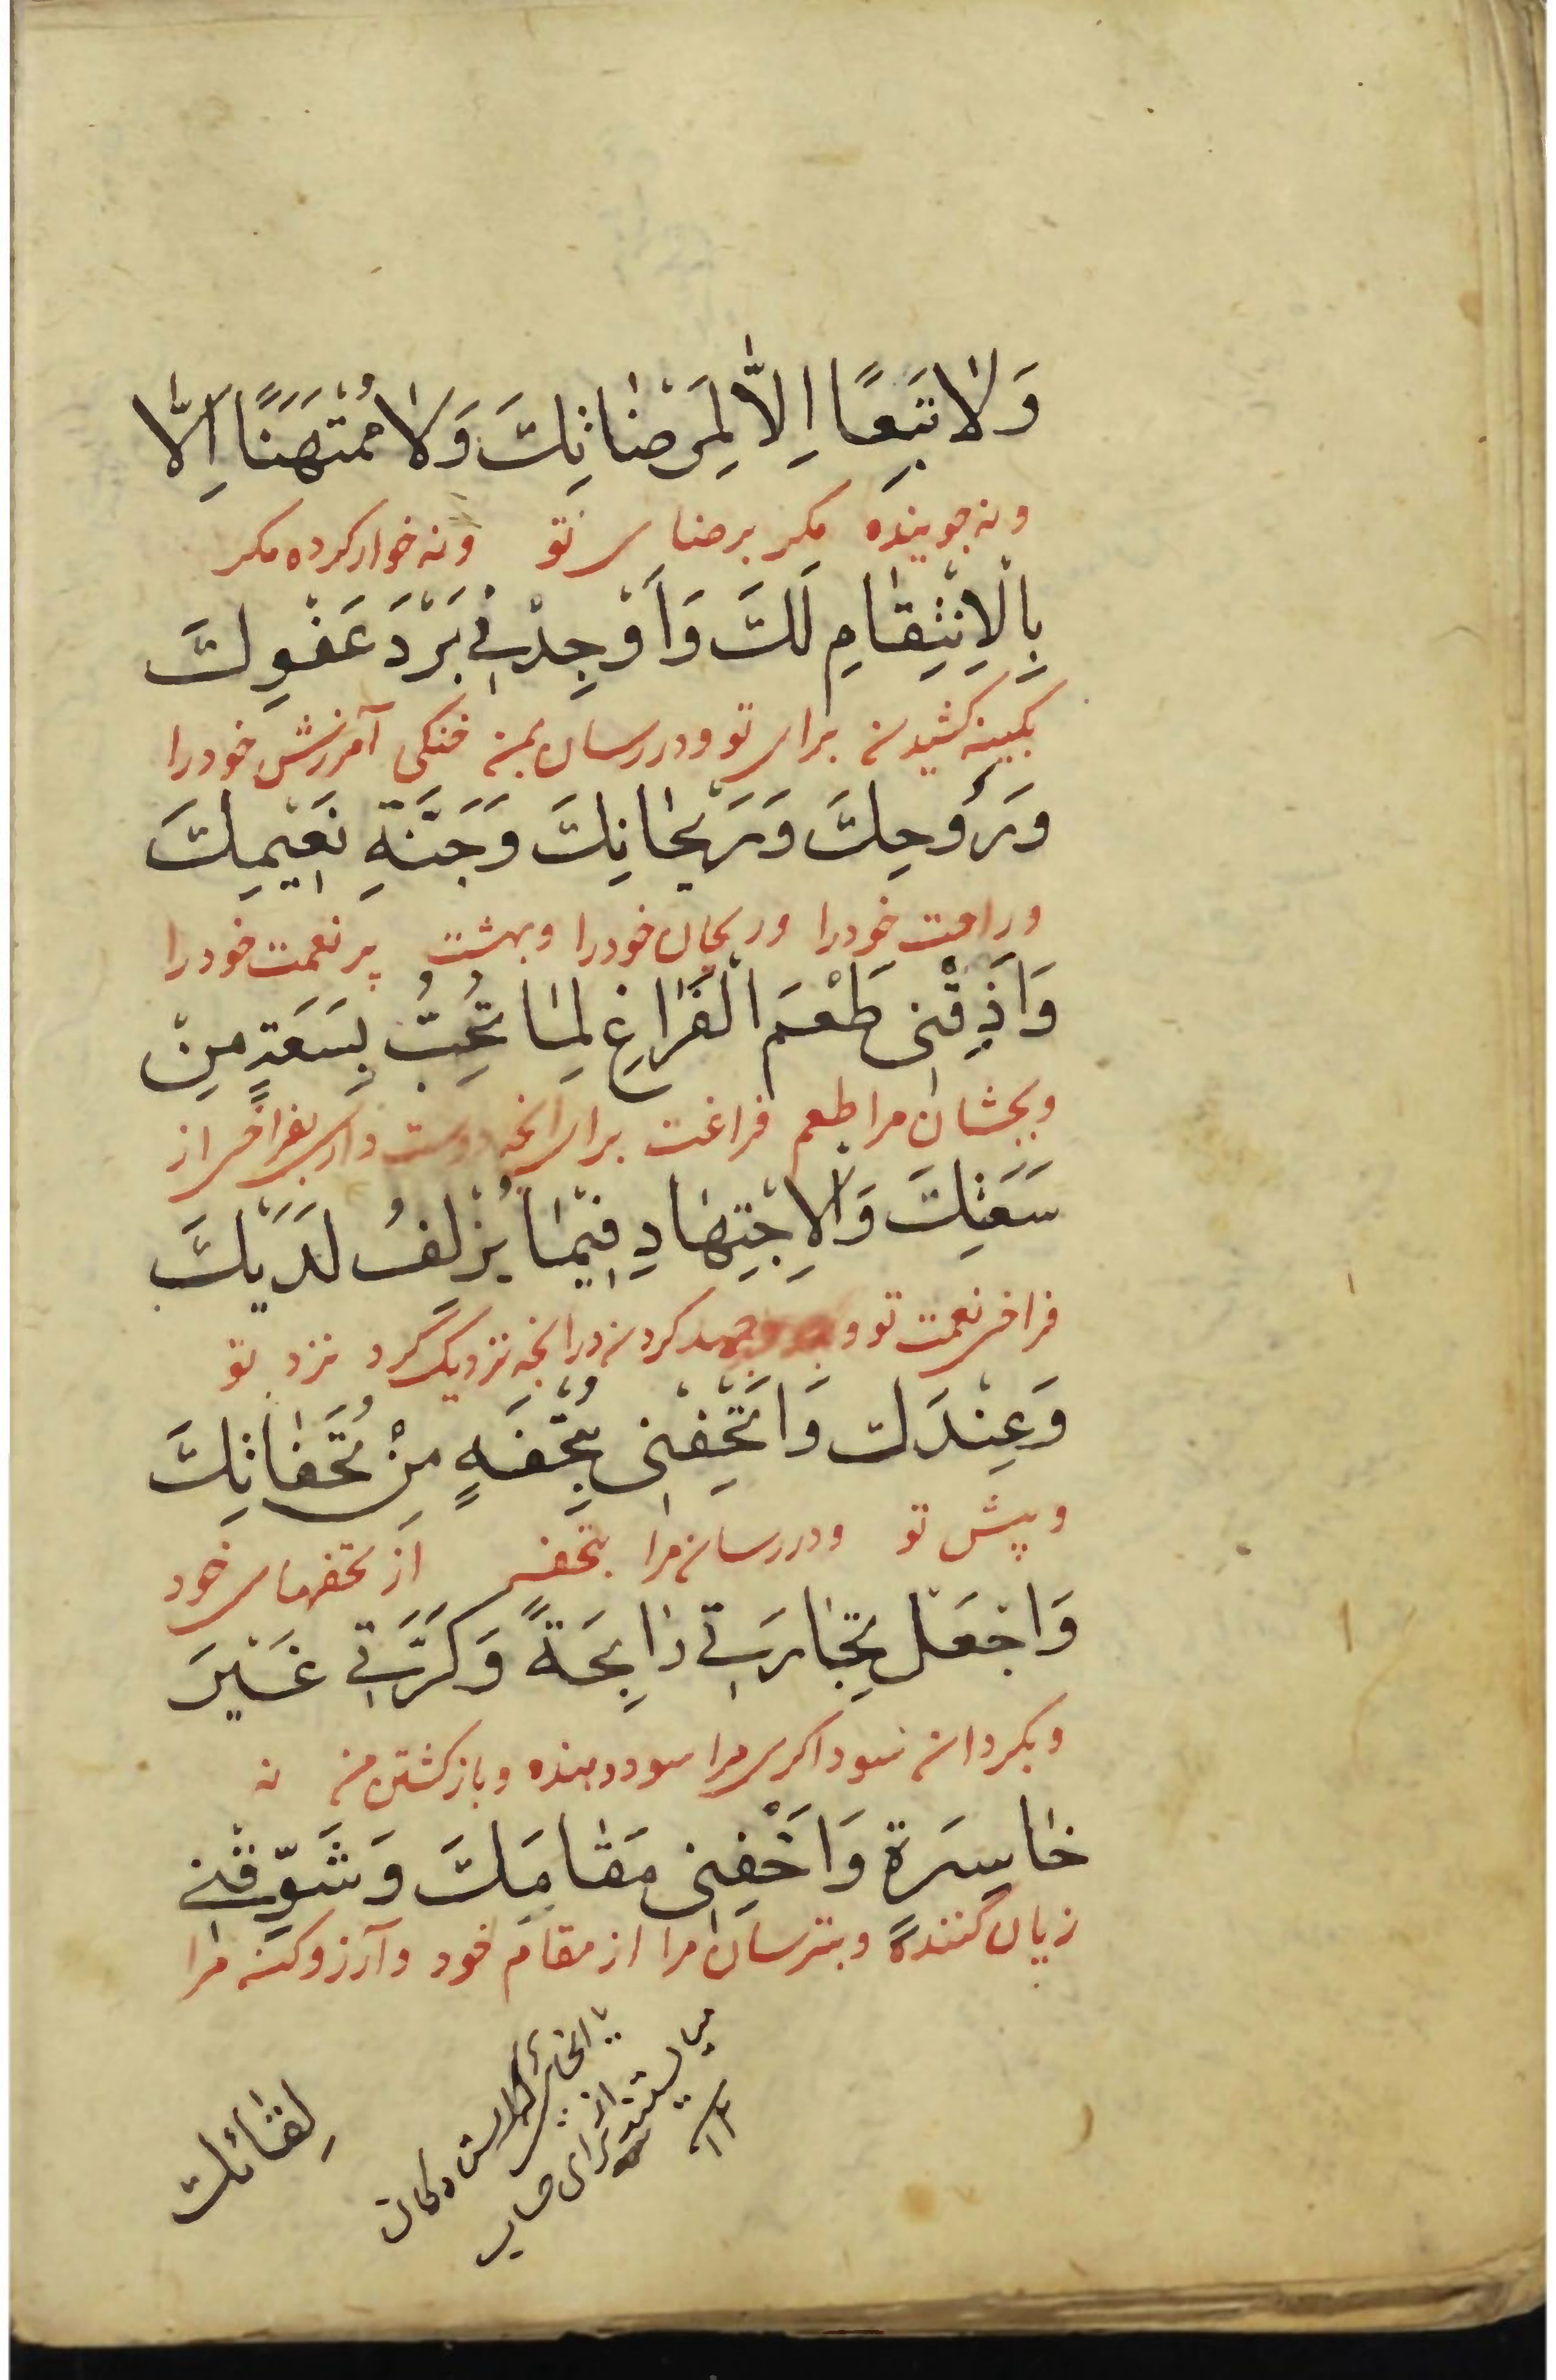 وَلَا تَبَعًا اِلَّا لِمَرْضَاتِكَ وَلَا مُمْتَهَنًا اِلَّا
و نه جوینده مکر برضای تو و نه خوار کرده مکر
بِالْاِنْتِقَامِ لَكَ وَاَوْجِدْنِي بَرْدَ عَفْوِكَ
بکینه کشیدن برای تو و در رسان بمن خنکی آمرزش خود را
وَرَوْحِكَ وَرَيْحَانِكَ وَجَنَّةِ نَعِيْمِكَ
و راحت خود را و ریحان خود را و بهشت پر نعمت خود را
وَاَذِقْنِي طَعْمَ الْفَرَاغِ لِمَا تُحِبُّ بِسَعَةٍ مِنْ
و بچشان مرا طعم فراغت برای انچه دوست داری بفراخی از
سَعَتِكَ وَالْاِجْتِهَادِ فِيْمَا يُزْلِفُ لَدَيْكَ
فراخی نعمت تو و جهد کردن در انچه نزدیک گرد نزد تو
وَعِنْدَكَ وَاَتْحِفْنِي بِتُحْفَةٍ مِنْ تُحَفَاتِكَ
و پیش تو و در رسان مرا بتحفه از تحفهای خود
وَاجْعَلْ تِجَارَتِي رَابِحَةً وَكَرَّتِي غَيْرَ
و بکردان سوداکری مرا سود دهنده و بازکشتن من نه
خَاسِرَةٍ وَاَخِفْنِي مَقَامَكَ وَشَوِّقْنِي
زیان کننده و بترسان مرا از مقام خود و آرزو کن مرا
لِقَائَكَ